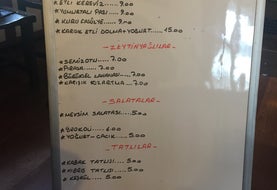 *ETLİ KEREVİZ.... 9.00
*YUMURTALI PAZI... 9.00
*KURU FASÜLYE..... 9.00
*KARIŞIK ETLİ DOLMA+YOĞURT... 15.00
-ZEYTİNYAĞLILAR-
*SEMİZOTU.... 7.00
*PIRASA.... 7.00
*BRÜKSEL LAHANASI.... 7.00
*KARIŞIK KIZARTMA... 7.00
-SALATALAR-
*MEVSİM SALATASI.... 5.00
*BROKOLİ.... 6.00
*YOĞURT-CACIK.... 5.00
-TATLILAR-
*KABAK TATLISI.... 5.00
*KIBRIS TATLISI.... 5.00
*KEŞKÜL..... 5.00